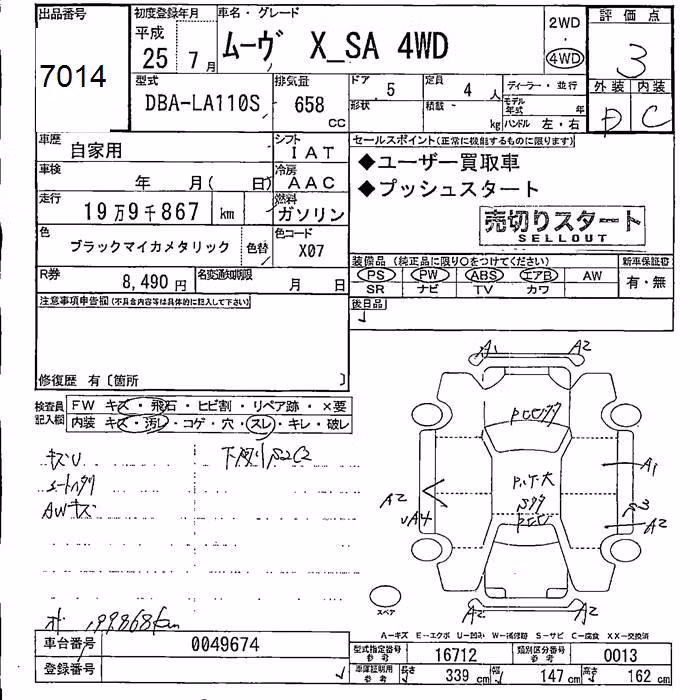 出品番号
7014
初度登録年月
平成
25 7月
車名・グレード
ムーヴ X_SA 4WD
2WD
4WD
評価点
3
外装 内装
D C
型式
DBA-LA110S
排気量
658
CC
ドア 5
定員 4 人
形状
積載 -
kg
ディーラー・並行
モデル年式 年
ハンドル 左・右
車歴
自家用
シフト
IAT
車検
年 月( 日)
冷房
AAC
走行
19万9千867 km
燃料
ガソリン
色
ブラックマイカメタリック
色替
色コード
X07
R券
8,490円
名変通知期限
月 日
セールスポイント(正常に機能するものに限ります)
◆ユーザー買取車
◆プッシュスタート
売切りスタート
SELLOUT
装備品 (純正品に限り○をつけてください)
新車保証書
PS PW ABS エアB AW
SR ナビ TV カワ
有・無
後日品
注意事項申告欄(不具合内容等は具体的に記入して下さい)
修復歴 有〔箇所 〕
検査員記入欄
FW キズ・飛石・ヒビ割・リペア跡・×要
内装 キズ・汚レ・コゲ・穴・スレ・キレ・破レ
キズU
AWキズ
下廻りS2C2
199868km
A1 A2
A2
A1
A2
A2 A2
スペア
A-キズ E-エクボ U-凹み W-補修跡 S-サビ C-腐食 XX-交換済
車台番号
0049674
登録番号
型式指定番号
参考
16712
類別区分番号
参考
0013
車庫証明用
参考
長さ 339 cm
幅 147 cm
高さ 162 cm